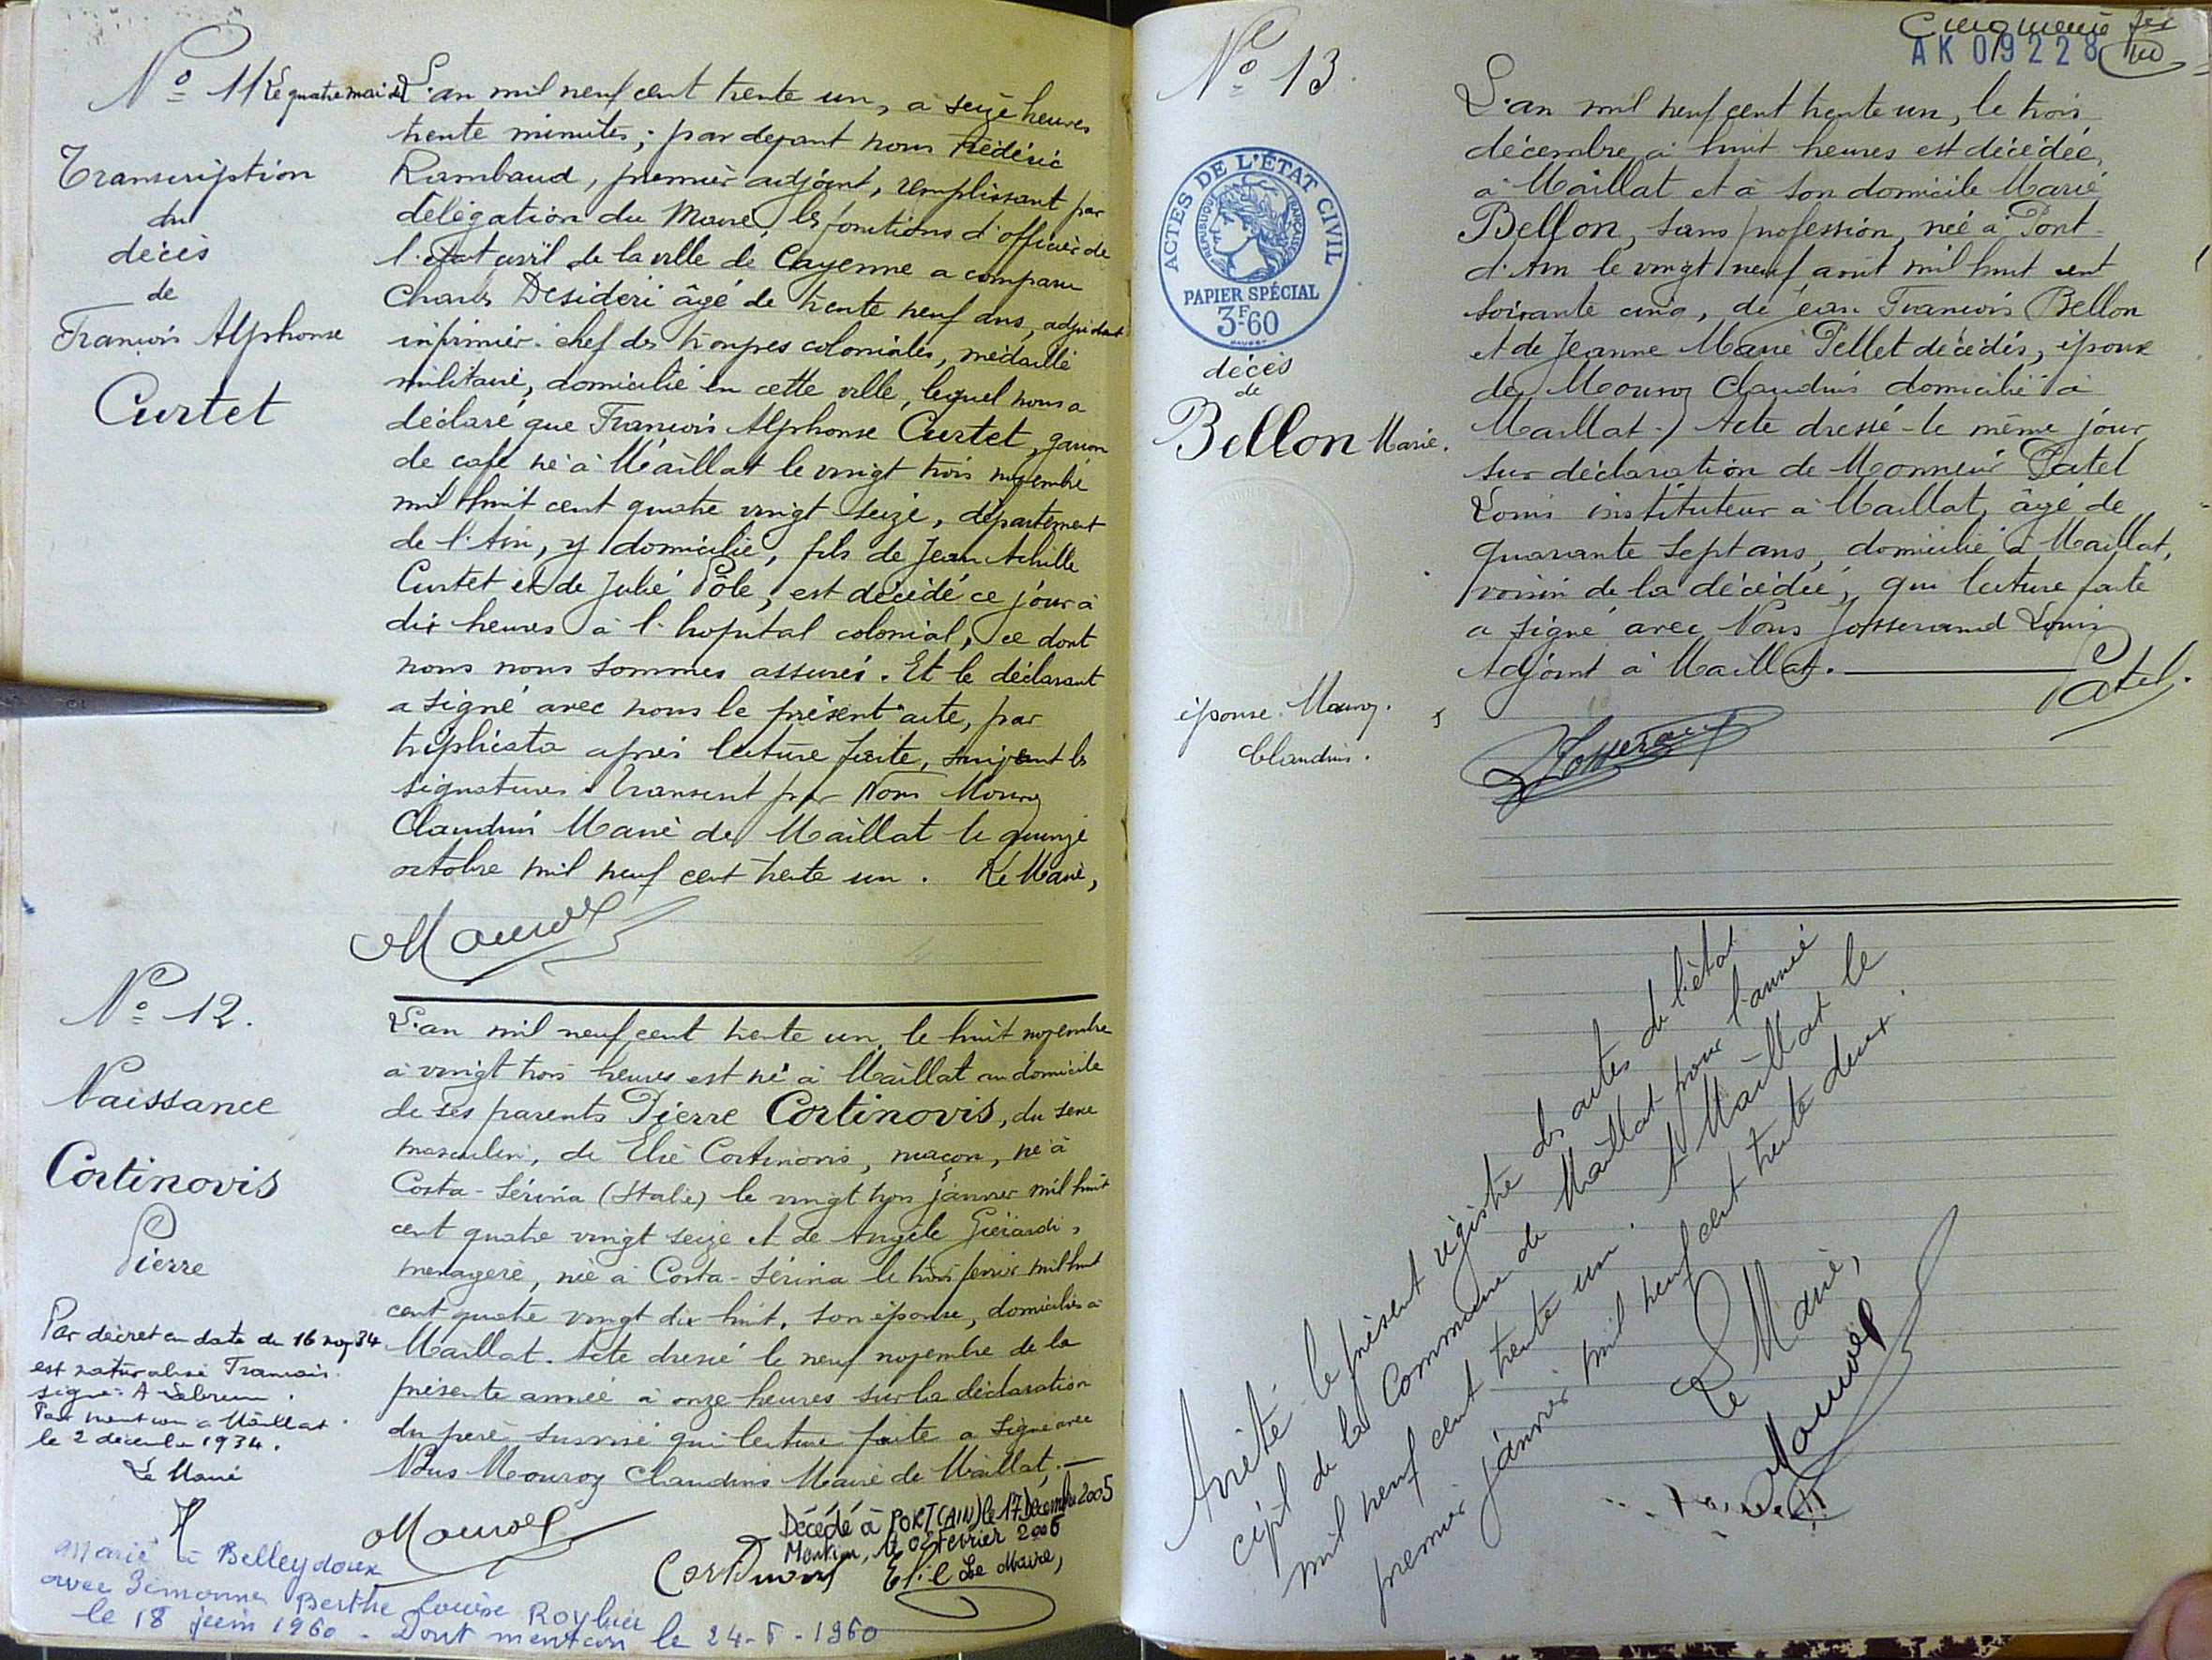 N° 11
Transcription
du
décès
de
François Alphonse
Curtet
Le quatre mai de
L'an mil neuf cent trente un, à seize heures
trente minutes ; par devant nous Frédéric
Rambaud, premier adjoint, remplissant par
délégation du Maire, les fonctions d'officier de
l'état civil de la ville de Cayenne a comparu
Charles Desideri âgé de trente neuf ans, adjudant
infirmier-chef des troupes coloniales, médaillé
militaire, domicilié en cette ville, lequel nous a
déclaré que François Alphonse Curtet, garçon
de café né à Maillat le vingt trois novembre
mil huit cent quatre vingt seize, département
de l'Ain, y domicilié, fils de Jean Achille
Curtet et de Julie Pôle, est décédé ce jour à
dix heures à l'hopital colonial, ce dont
nous nous sommes assurés. Et le déclarant
a signé avec nous le présent acte, par
triplicata après lecture faite, suivent les
signatures. Transcrit par Nous Mouroz
Claudius Maire de Maillat le quinze
octobre mil neuf cent trente un. Le Maire,
Mouroz
N° 12.
Naissance
Cortinovis
Pierre
Par décret en date du 16 nov 34
est naturalisé Français.
signé: A Lebrun.
Pour mention à Maillat
le 2 décembre 1934.
Le Maire
L'an mil neuf cent trente un, le huit novembre
à vingt trois heures est né à Maillat au domicile
de ses parents Pierre Cortinovis, du sexe
masculin, de Elie Cortinovis, maçon, né à
Costa-Sérina (Italie) le vingt trois janvier mil huit
cent quatre vingt seize et de Angèle Gherardi,
menagère, née à Costa-Sérina le trois février mil huit
cent quatre vingt dix huit, son épouse, domiciliés à
Maillat. Acte dressé le neuf novembre de la
présente année à onze heures sur la déclaration
du père susvisé qui lecture faite a signé avec
Nous Mouroz Claudius Maire de Maillat.
Mouroz
Cortinovis
Décédé à PORT (AIN) le 17 Décembre 2005
Mention, le 02 Février 2006
Le Maire,
Marié à Belleydoux
avec Simonne Berthe Louise
le 18 juin 1960 - Dont mention le 24-6-1960
N° 13.
AK 09228
ACTES DE L'ÉTAT CIVIL
RÉPUBLIQUE FRANÇAISE
PAPIER SPÉCIAL
3F60
décès
de
Bellon Marie.
épouse Mouroz
Claudius.
L'an mil neuf cent trente un, le trois
décembre à huit heures est décédée,
à Maillat et à son domicile Marie
Bellon, sans profession, née à Pont-
d'Ain le vingt neuf août mil huit cent
soixante cinq, de Jean François Bellon
et de Jeanne Marie Pellet décédés, épouse
de Mouroz Claudius domicilié à
Maillat. / Acte dressé le même jour
sur déclaration de Monsieur Patel
Louis instituteur à Maillat, âgé de
quarante sept ans, domicilié à Maillat,
voisin de la décédée, qui lecture faite
a signé avec Nous Josserand Louis
Adjoint à Maillat.
Patel.
Josserand
Arrêté le présent régistre des actes de l'état
civil de la Commune de Maillat pour l'année
mil neuf cent trente un. A Maillat le
premier janvier mil neuf cent trente deux.
Le Maire,
Mouroz